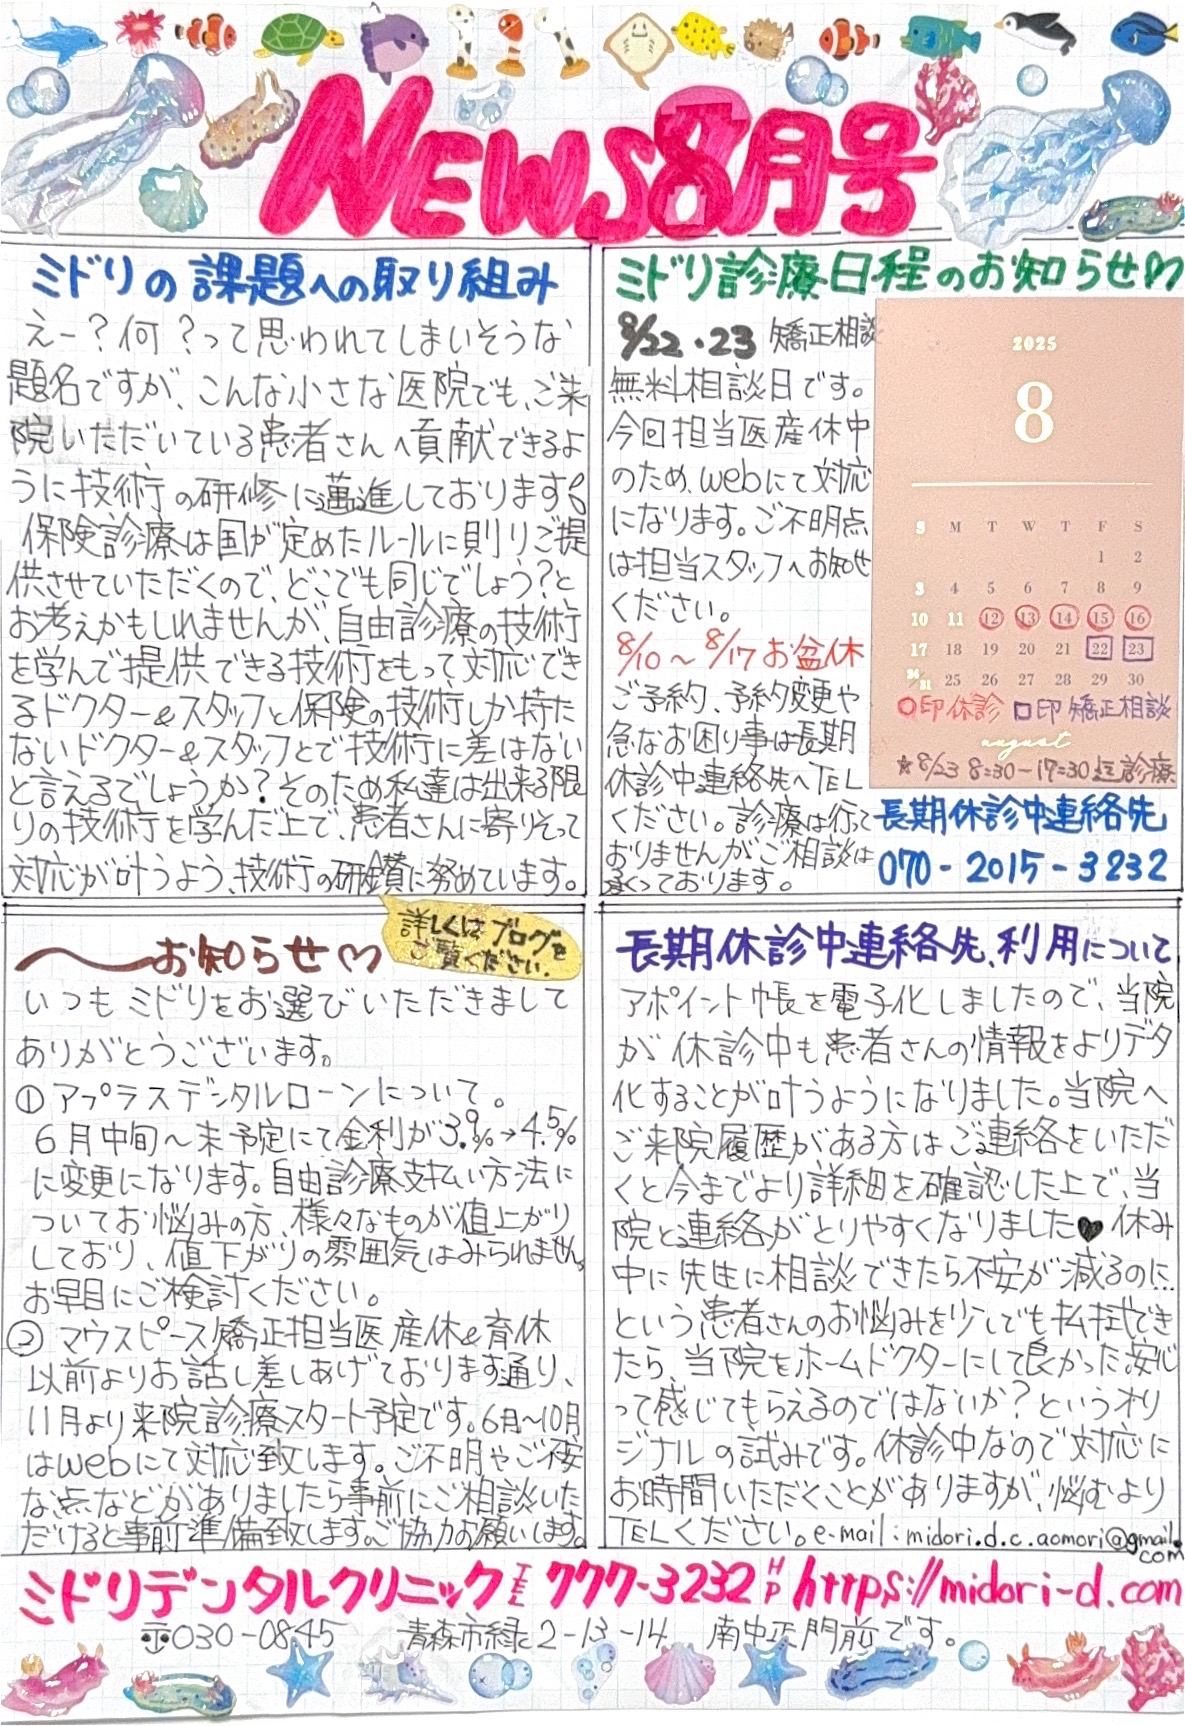 NEWS8月号
ミドリの課題への取り組み
えー？何？って思われてしまいそうな
題名ですが、こんな小さな医院でも、ご来
院いただいている患者さんへ貢献できるよ
うに技術の研修に邁進しております。
保険診療は国が定めたルールに則りご提
供させていただくので、どこでも同じでしょう？と
お考えかもしれませんが、自由診療の技術
を学んで提供できる技術をもって対応でき
るドクター&スタッフと保険の技術しか持た
ないドクター&スタッフとで技術に差はない
と言えるでしょうか？そのため私達は出来る限
りの技術を学んだ上で、患者さんに寄りそって
対応が叶うよう、技術の研鑽に努めています。
ミドリ診療日程のお知らせ♡
8/22・23 矯正相談
無料相談日です。
今回担当医産休中
のため、webにて対応
になります。ご不明点
は担当スタッフへお知せ
ください。
8/10～8/17お盆休
ご予約、予約変更や
急なお困り事は長期
休診中連絡先へTEL
ください。診療は行って
おりませんがご相談は
承っております。
2025
8
S M T W T F S
1 2
3 4 5 6 7 8 9
10 11 12 13 14 15 16
17 18 19 20 21 22 23
24/31 25 26 27 28 29 30
○印休診 □印矯正相談
august
★8/23 8:30-17:30迄診療
長期休診中連絡先
070-2015-3232
お知らせ♡
詳しくはブログを
ご覧ください.
いつもミドリをお選びいただきまして
ありがとうございます。
①アプラスデンタルローンについて。
6月中旬～末予定にて金利が3.9%→4.5%
に変更になります。自由診療支払い方法に
ついてお悩みの方、様々なものが値上がり
しており、値下がりの雰囲気はみられません。
お早目にご検討ください。
②マウスピース矯正担当医産休&育休
以前よりお話し差しあげております通り、
11月より来院診療スタート予定です。6月～10月
はwebにて対応致します。ご不明やご不安
な点などがありましたら事前にご相談いた
だけると事前準備致します。ご協力お願いします。
長期休診中連絡先、利用について
アポイント帳を電子化しましたので、当院
が休診中も患者さんの情報をよりデタ
化することが叶うようになりました。当院へ
ご来院履歴がある方はご連絡をいただ
くと今までより詳細を確認した上で、当
院と連絡がとりやすくなりました♥休み
中に先生に相談できたら不安が減るのに…
という患者さんのお悩みを少しでも払拭でき
たら、当院をホームドクターにして良かった。安心
って感じてもらえるのではないか？というオリ
ジナルの試みです。休診中なので対応に
お時間いただくことがありますが、悩むより
TELください。e-mail:midori.d.c.aomori@gmail.
com
ミドリデンタルクリニック TEL 777-3232 HP https://midori-d.com
〒030-0845 青森市緑2-13-14 南中正門前です。